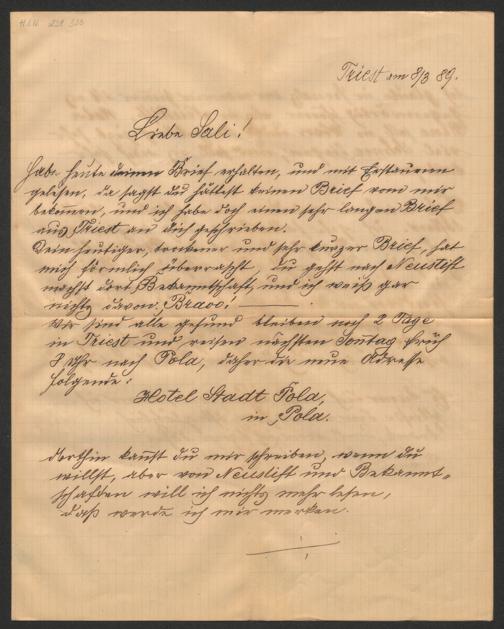 H.I.N. 231 323
Triest am 8/3 89.
Liebe Sali!
Habe heute deinen Brief erhalten, und mit Erstaunen
gelesen, da sagst du hättest keinen Brief von mir
bekommen, und ich habe doch einen sehr langen Brief
aus Triest an dich geschrieben.
Dein heutiger, trockener und sehr kurzer Brief, hat
mich förmlich überrascht, du gehst nach Neustift
machst dort Bekanntschaft, und ich weiß gar
nichts davon, Bravo! —
Wir sind alle gesund bleiben noch 2 Tage
in Triest und reisen nächsten Sontag früh
8 Uhr nach Pola, daher die neue Adresse
folgende:
Hotel Stadt Pola,
in Pola.
dorthin kannst du mir schreiben, wenn du
willst, aber von Neustift und Bekannt=
schaften will ich nichts mehr lesen,
daß werde ich mir merken.